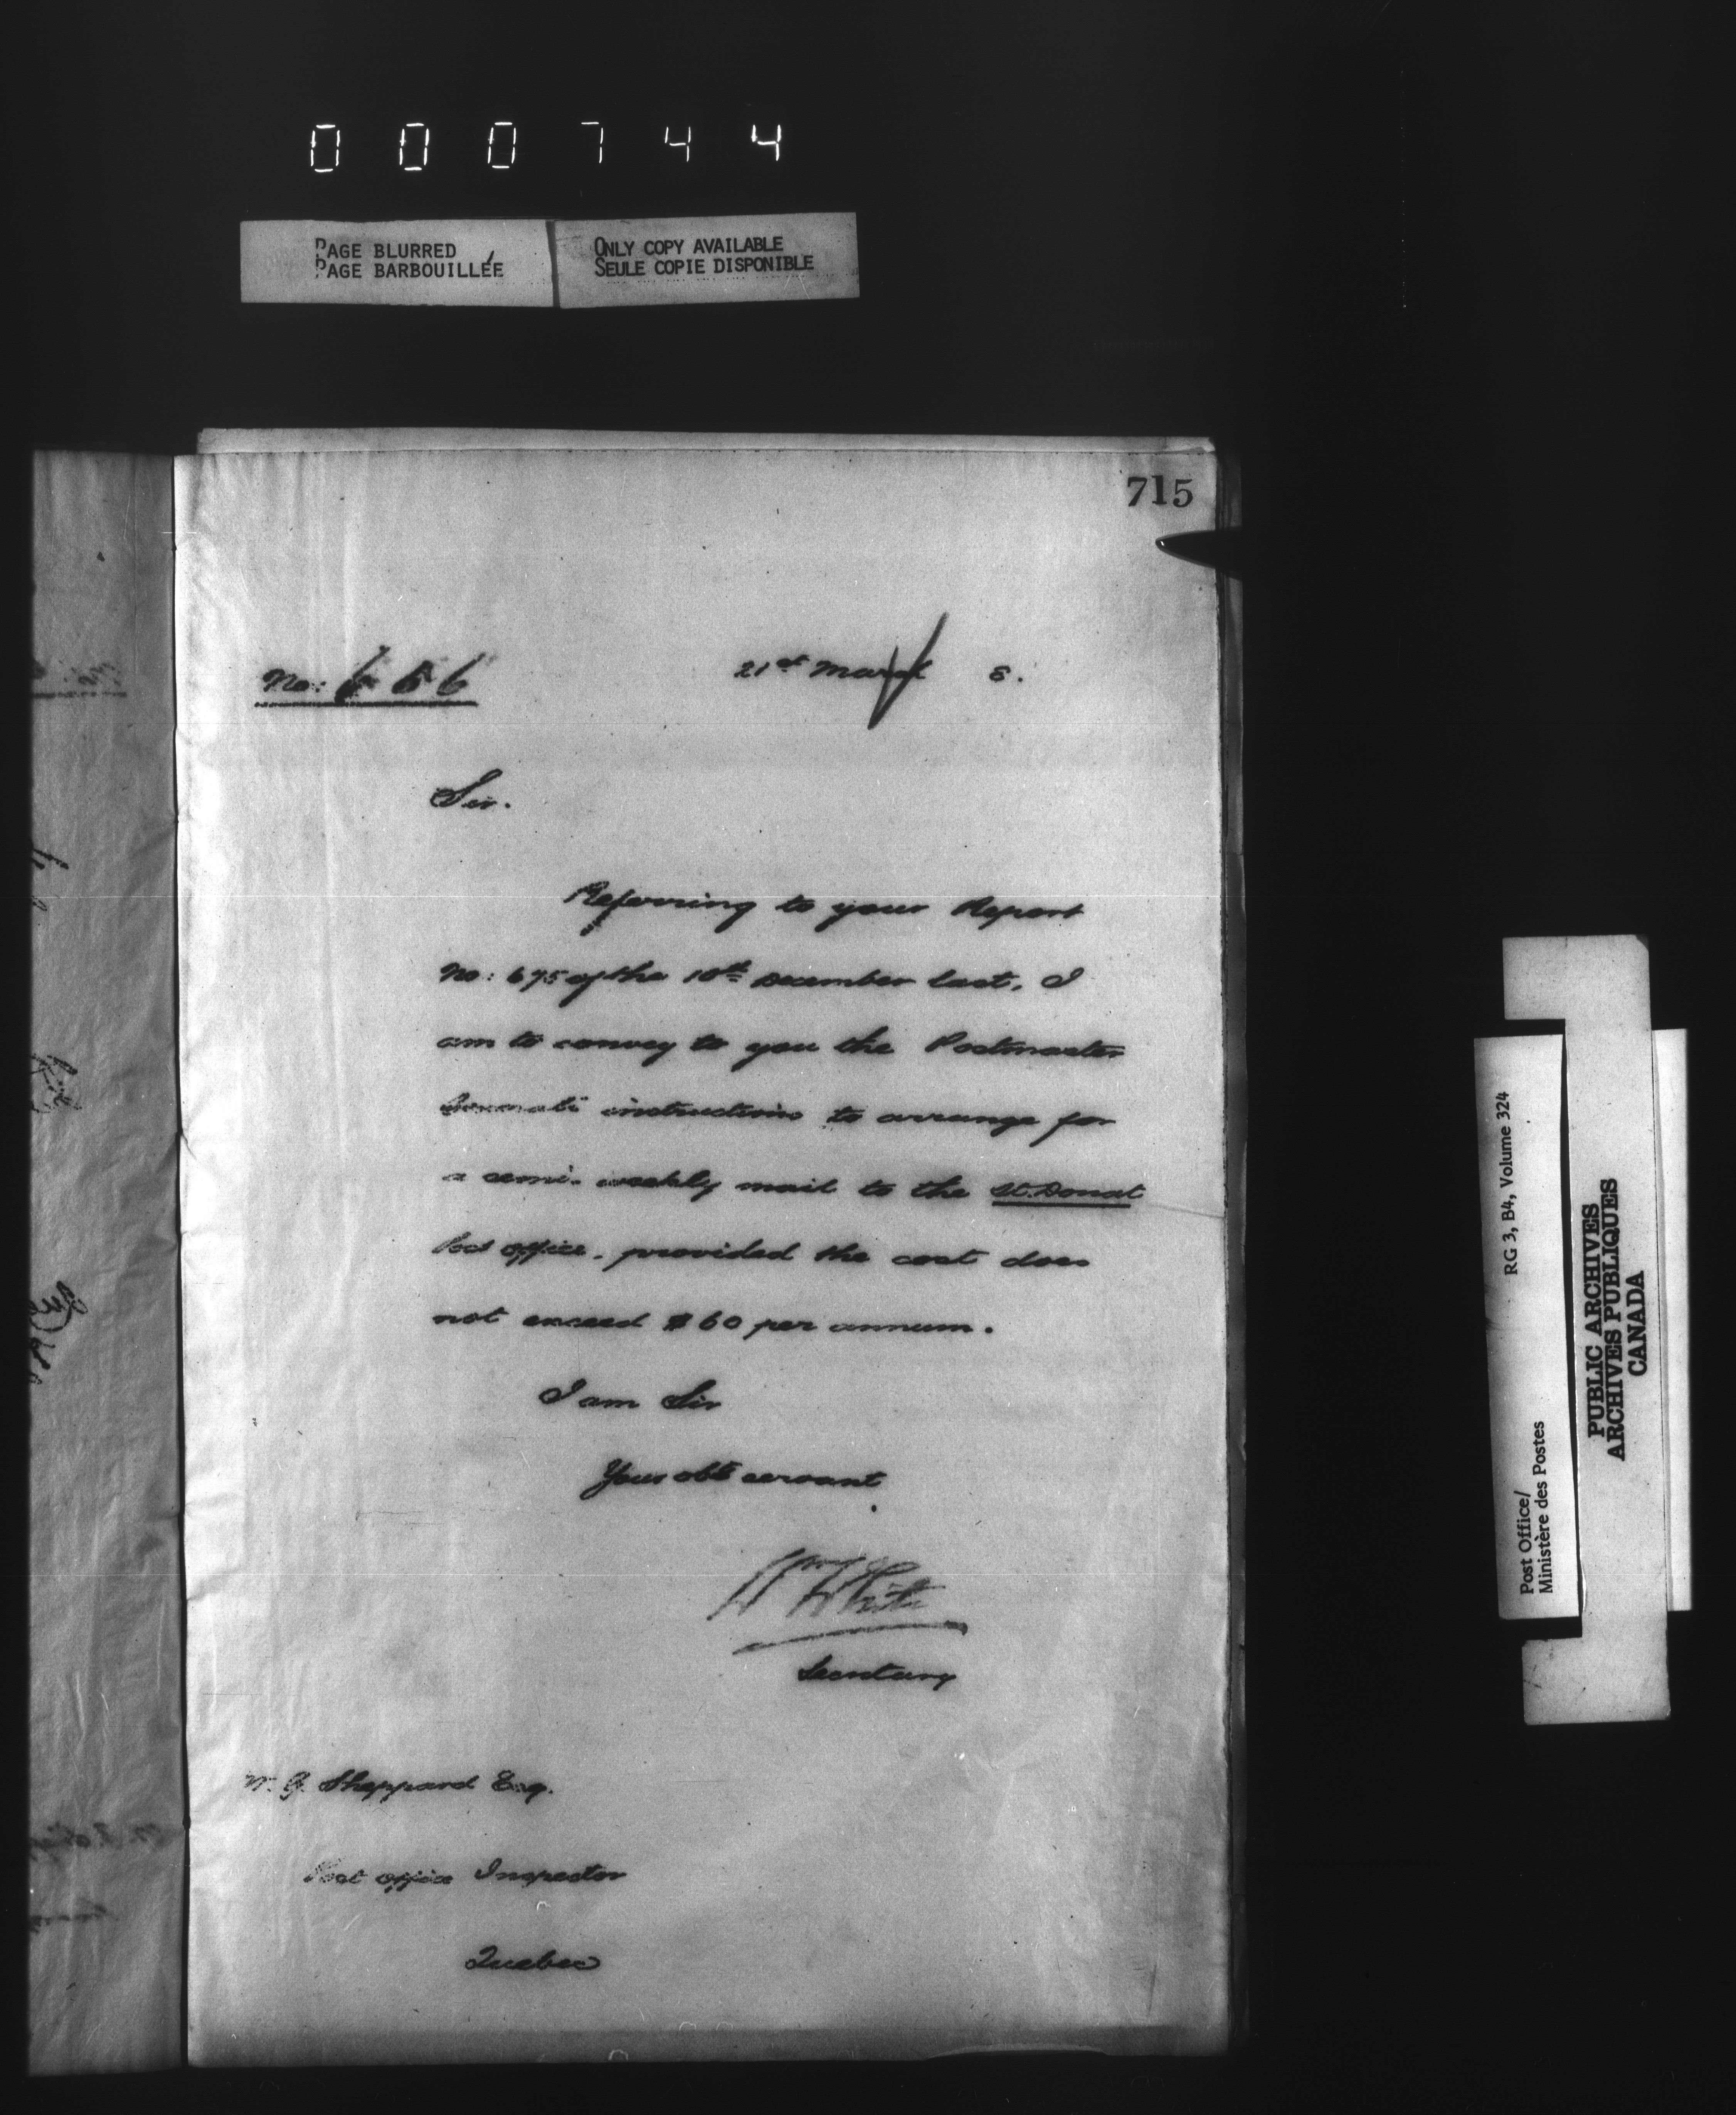 000744
PAGE BLURRED
PAGE BARBOUILLÉE
ONLY COPY AVAILABLE
SEULE COPIE DISPONIBLE
715
No: 656
21st March 8.
Sir.
Referring to your Report
No: 675 of the 10th December last, I
am to convey to you the Postmaster
General's instructions to arrange for
a semi-weekly mail to the St. Donat
Post Office, provided the cost does
not exceed $60 per annum.
I am Sir
Your obt servant
Wm White
Secretary
W. G. Sheppard Esq.
Post Office Inspector
Quebec
RG 3, B4, Volume 324
Post Office/
Ministère des Postes
PUBLIC ARCHIVES
ARCHIVES PUBLIQUES
CANADA